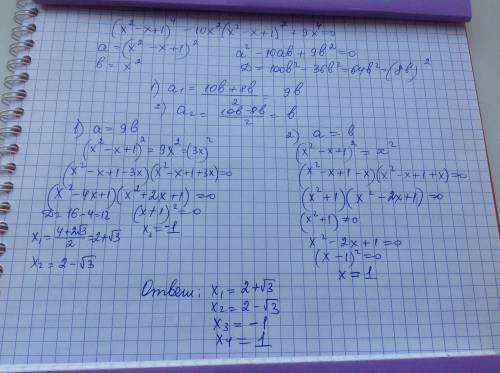 (x²-x+1)⁴-10x²(x²-x+1)²+9x⁴=0
a=(x²-x+1)²
в=x²
a²-10ав+9в²=0
D=100в²-36в²=64в²=(8в)²
1) a₁=(10в+8в)/2=9в
2) a₂=(10в-8в)/2=в
1) a=9в
(x²-x+1)²=9x²=(3x)²
(x²-x+1-3x)(x²-x+1+3x)=0
(x²-4x+1)(x²+2x+1)=0
D=16-4=12
x₁=(4+2√3)/2=2+√3
x₂=2-√3
(x+1)²=0
x=-1
2) a=в
(x²-x+1)²=x²
(x²-x+1-x)(x²-x+1+x)=0
(x²+1)(x²-2x+1)=0
(x²+1)≠0
x²-2x+1=0
(x-1)²=0
x=1
Ответ: x₁=2+√3
x₂=2-√3
x₃=-1
x₄=1